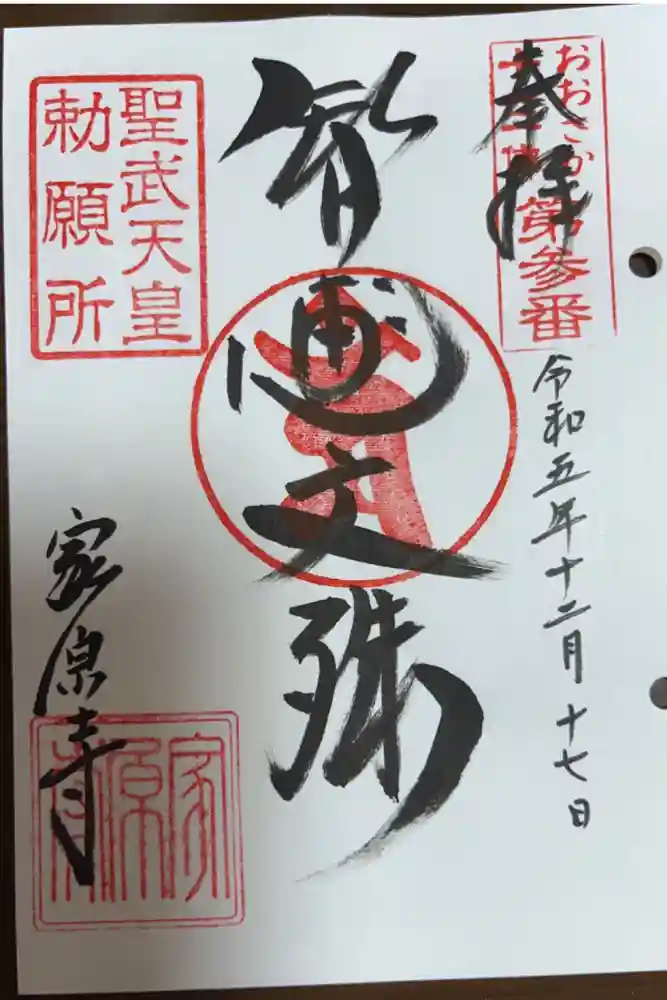 奉拝
おおさか
第参番
令和五年十二月十七日
智恵文殊
聖武天皇
勅願所
家原寺
家原寺